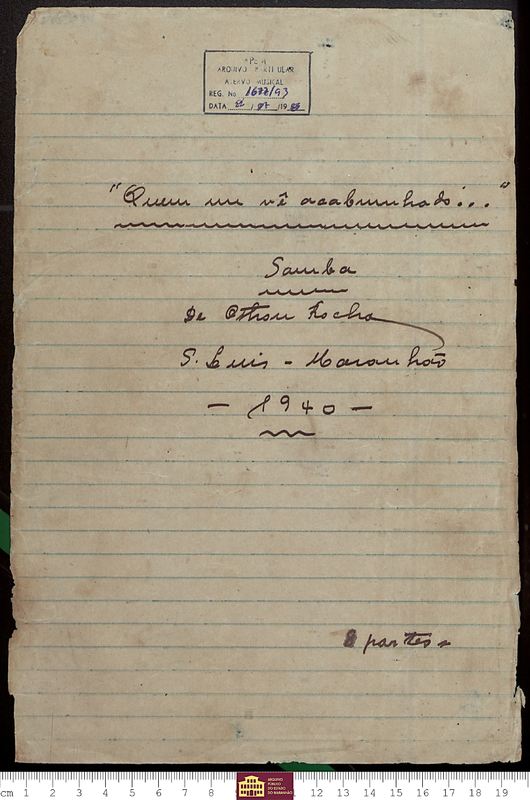 APEM
ARQUIVO PARTICULAR
ACERVO MUSICAL
REG. No 1677/93
DATA 22 / 07 / 19
"Quem me vê acabrunhado..."
Samba
De Othon Rocha
S. Luis - Maranhão
- 1940 -
8 partes
cm 1 2 3 4 5 6 7 8 12 13 14 15 16 17 18 19
ARQUIVO
PÚBLICO
DO ESTADO
DO MARANHÃO